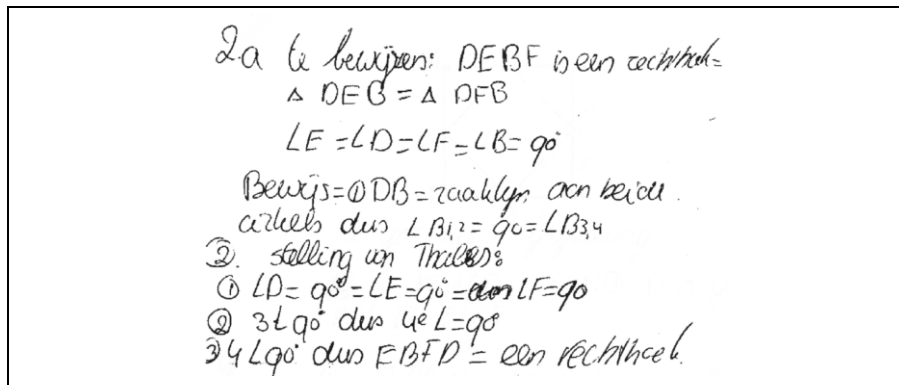 2a te bewijzen: DEBF is een rechthoek=
△ DEB = △ DFB
∠E = ∠D = ∠F = ∠B = 90°
Bewijs = ① DB = raaklijn aan beide
cirkels dus ∠B1,2 = 90 = ∠B3,4
②. stelling van Thales:
① ∠D = 90° = ∠E = 90° = ∠F = 90
② 3∠90° dus 4e ∠ = 90°
3 4∠90° dus EBFD = een rechthoek.